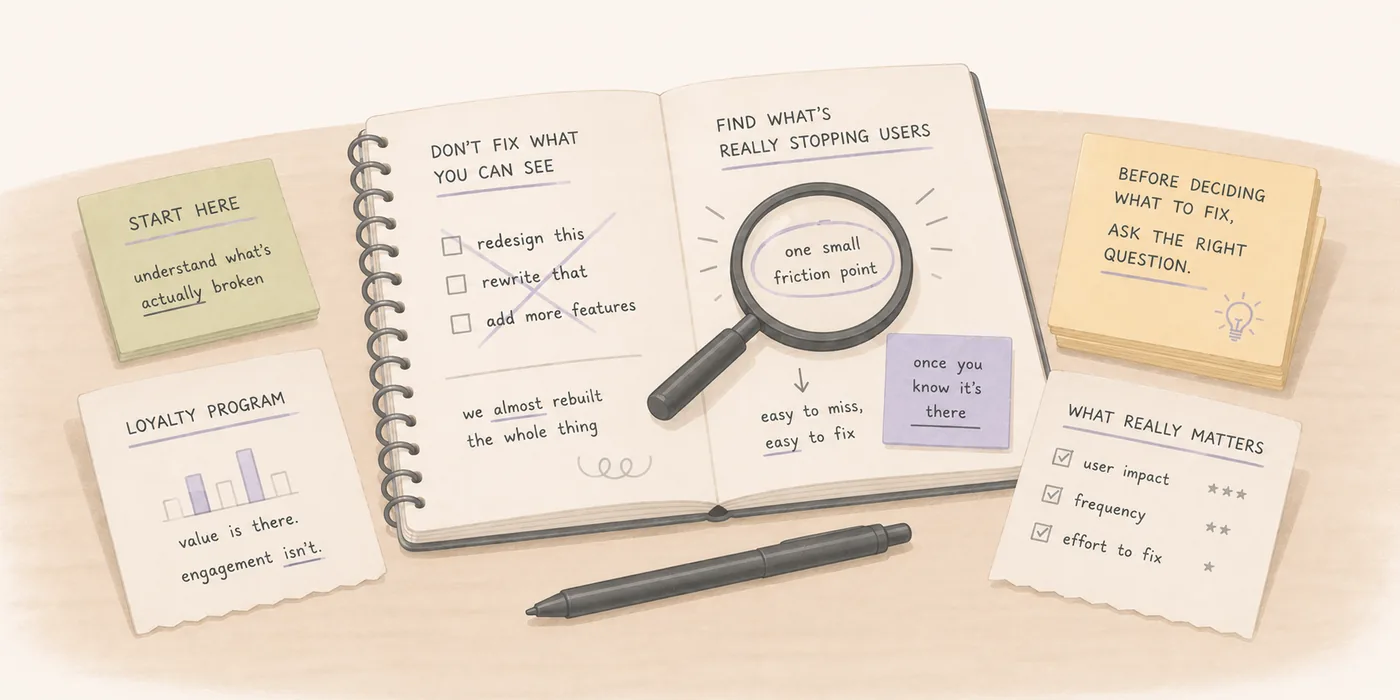 START HERE
understand what's
actually broken
LOYALTY PROGRAM
value is there.
engagement isn't.
DON'T FIX WHAT
YOU CAN SEE
redesign this
rewrite that
add more features
we almost rebuilt
the whole thing
FIND WHAT'S
REALLY STOPPING USERS
one small
friction point
easy to miss,
easy to fix
once you
know it's
there
BEFORE DECIDING
WHAT TO FIX,
ASK THE RIGHT
QUESTION.
WHAT REALLY MATTERS
user impact
frequency
effort to fix